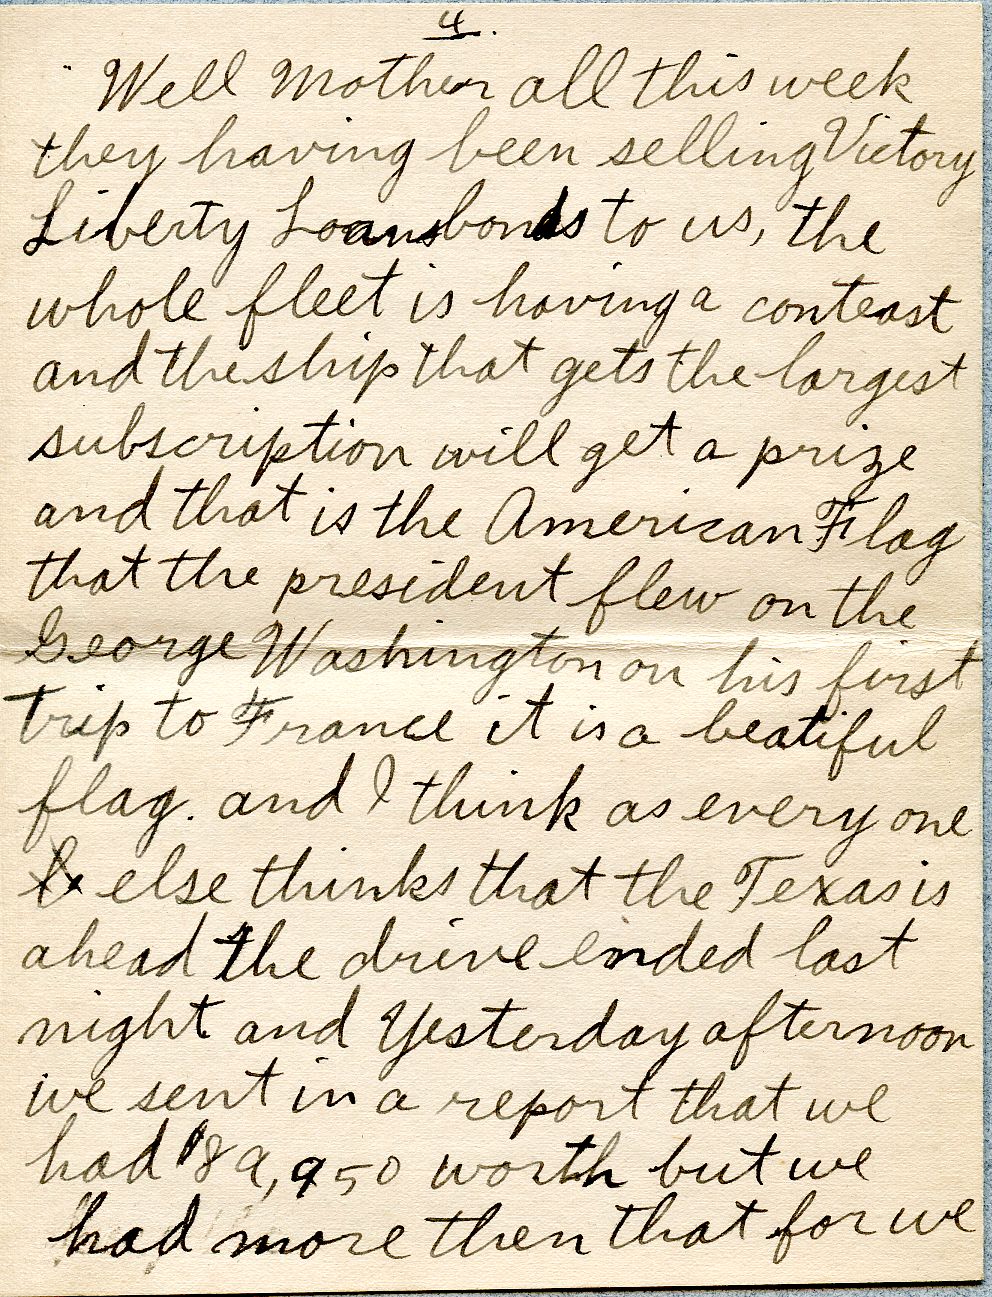 4.
Well Mother all this week
they having been selling Victory
Liberty Loans bonds to us, the
whole fleet is having a conteast
and the ship that gets the largest
subscription will get a prize
and that is the American Flag
that the president flew on the
George Washington on his first
trip to France it is a beatiful
flag. and I think as every one
else thinks that the Texas is
ahead the drive ended last
night and Yesterday afternoon
we sent in a report that we
had $89,950 worth but we
had more then that for we